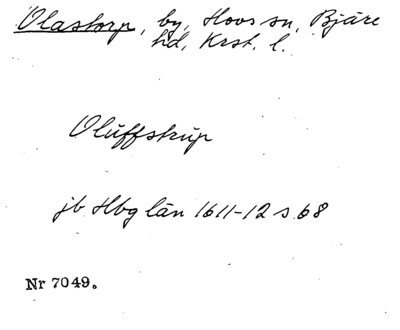 Olastorp, by, Hovs sn, Bjäre
hd, Krst. l.
Oluffstrup
jb Hbg län 1611-12 s 68
Nr 7049.